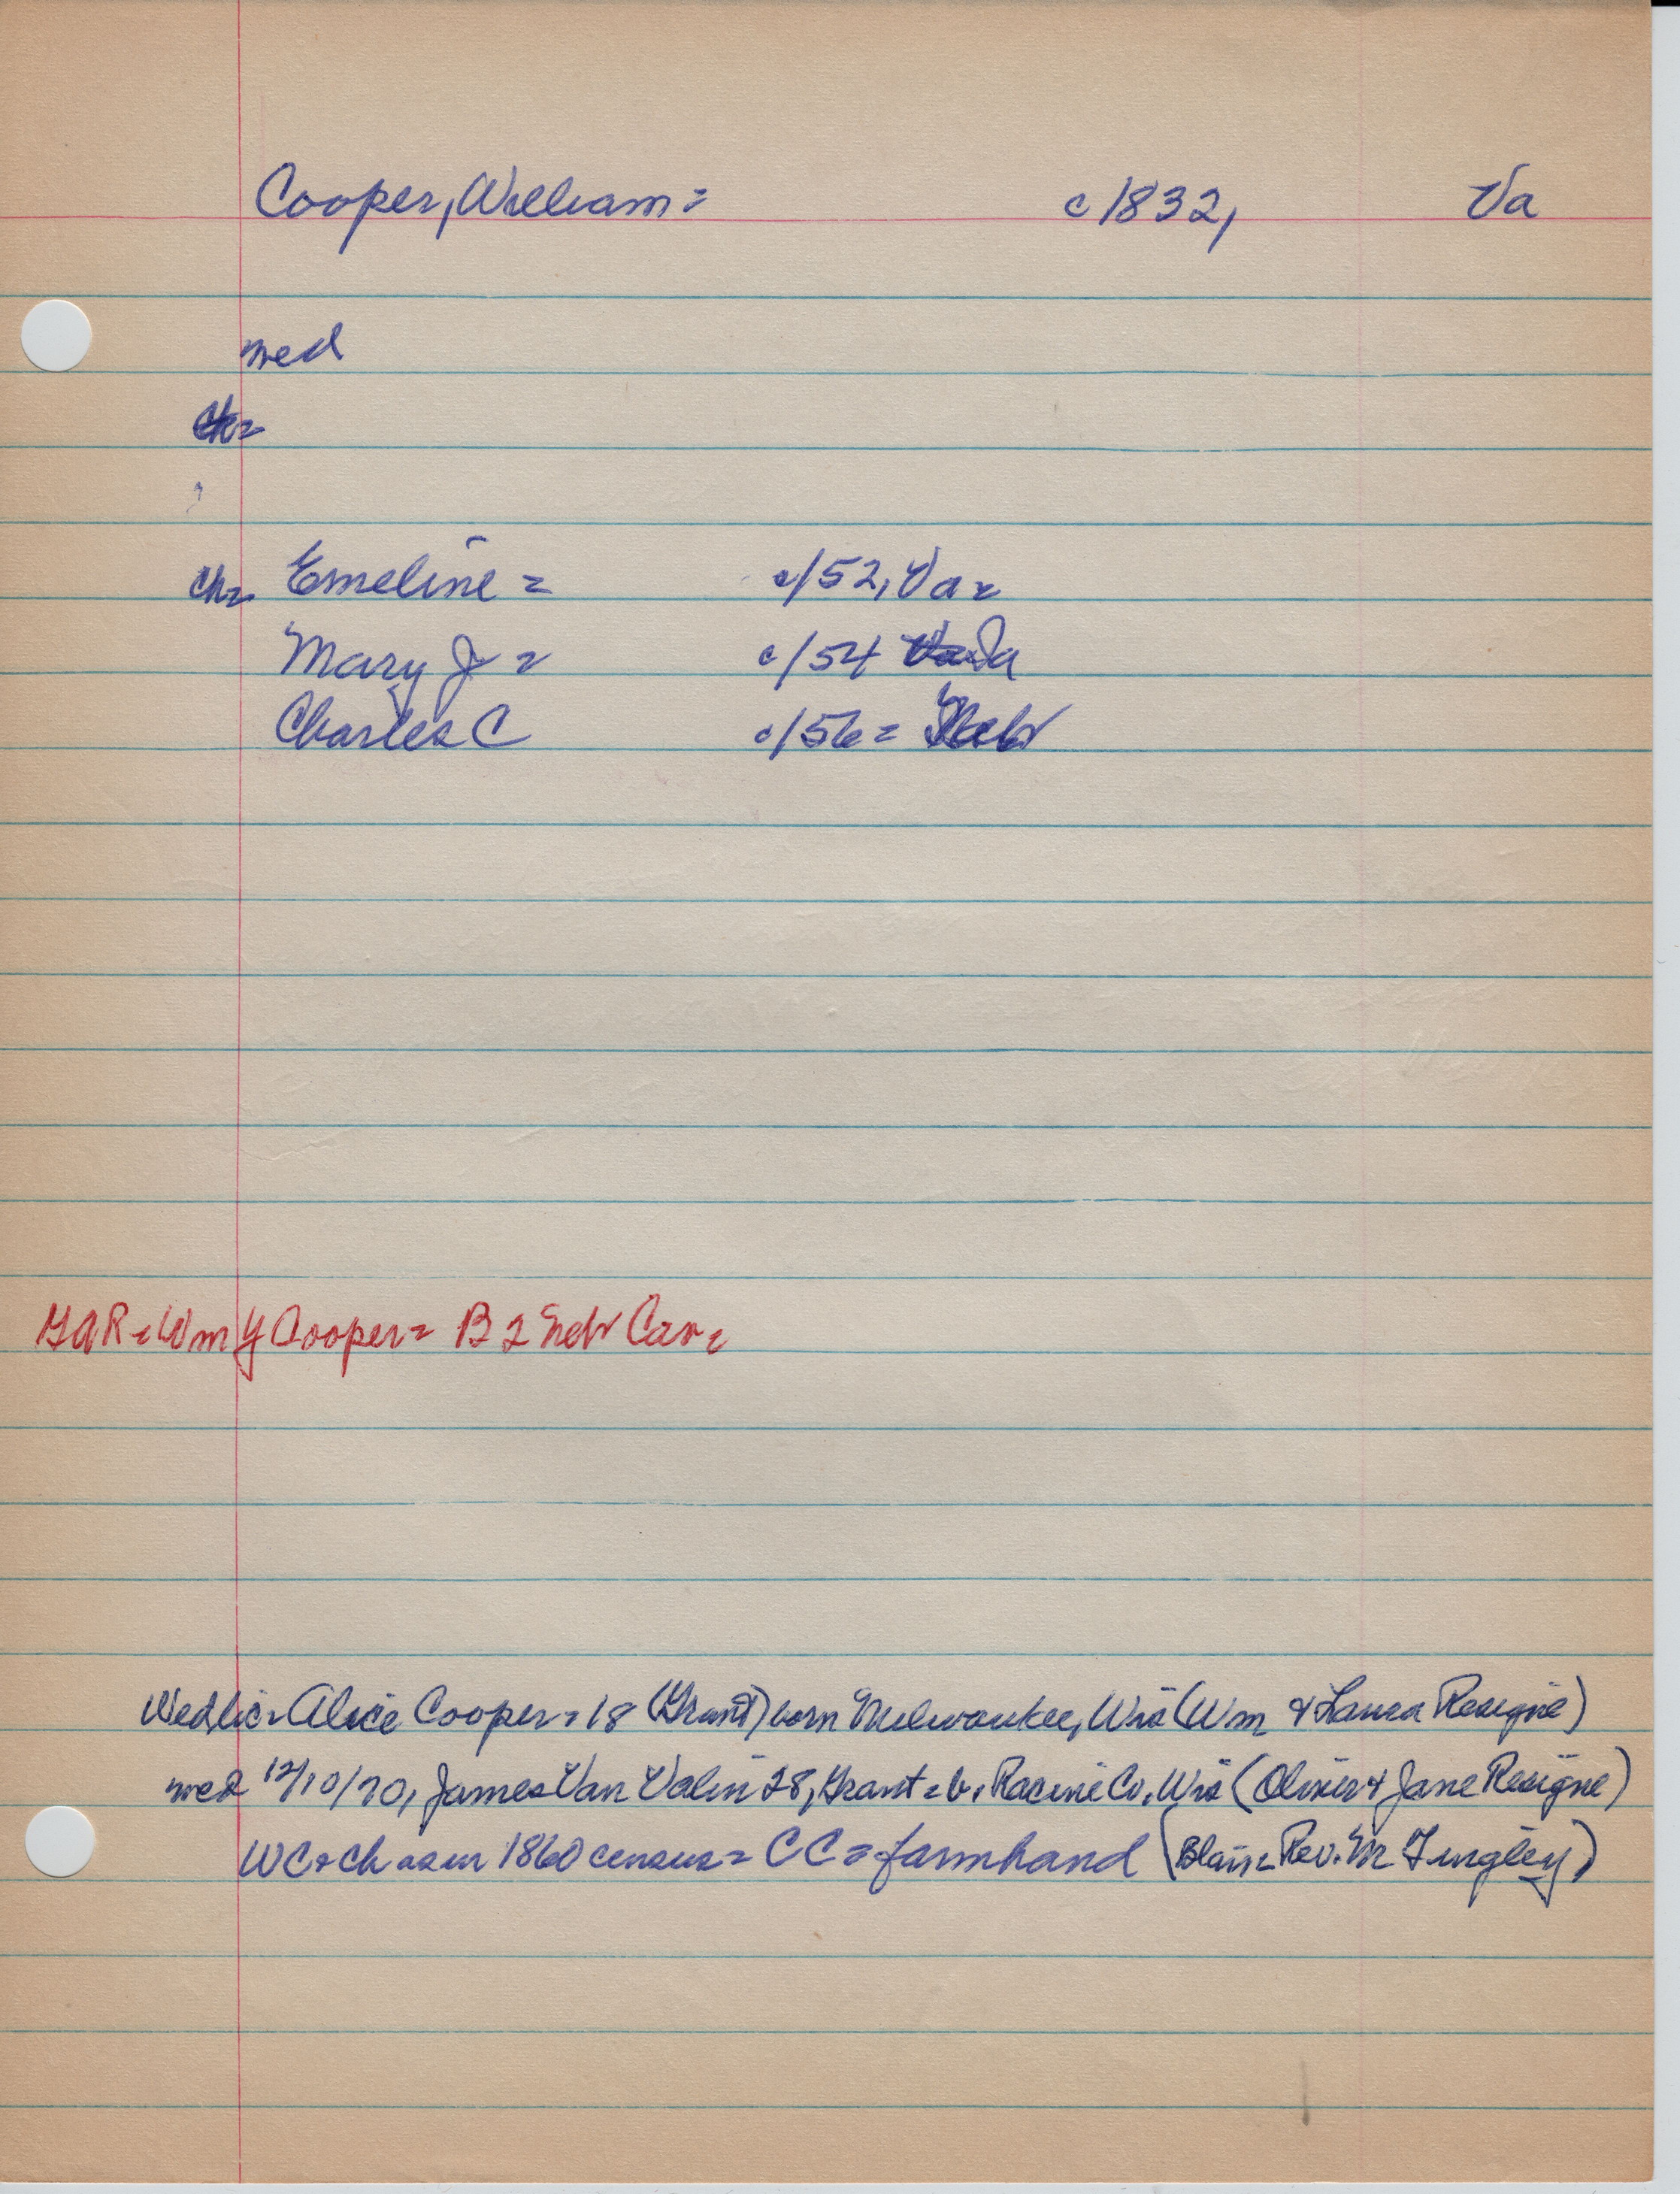 Cooper, William = c 1832, Va
med
ch=
ch= Emeline = c/52, Va =
Mary J = c/54 Ia
Charles C c/56 = Nebr
GAR = Wm Y Cooper = B 2 Nebr Cav =
Wed lic = Alice Cooper = 18 (Grant) born Milwaukee, Wis (Wm & Laura Resigne)
med 12/10/70, James Van Valin 28, Grant = b. Racine Co. Wis (Oliver & Jane Resigne)
WC & ch as in 1860 census = CC = farmhand (Blair = Rev. M Tingley)